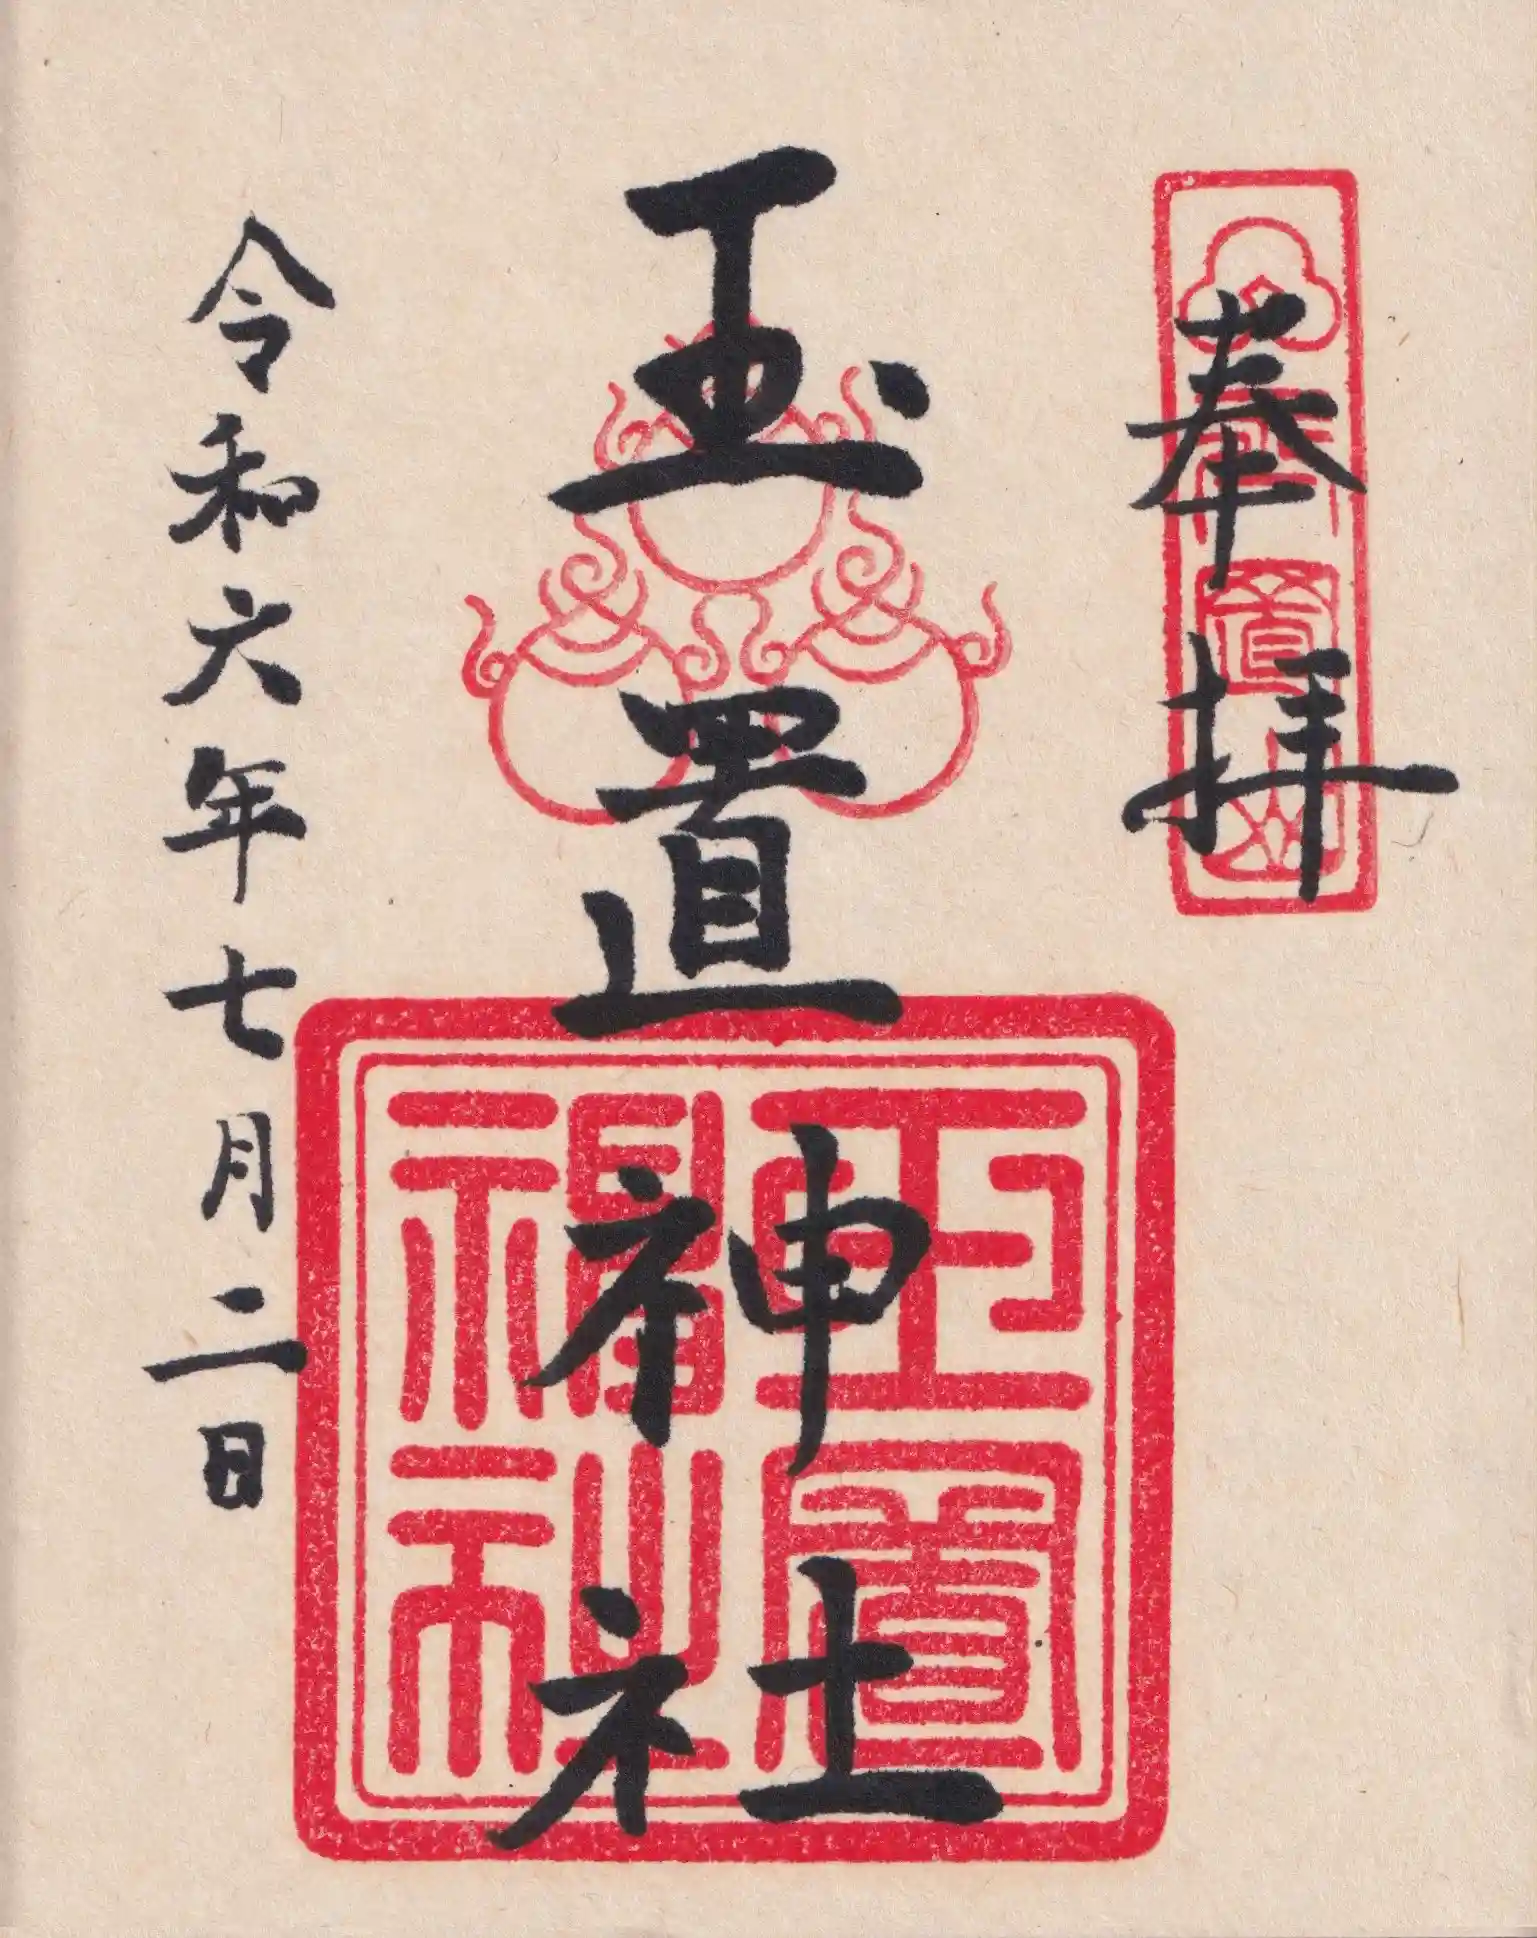 奉拝
玉置神社
令和六年七月二日
玉置神社